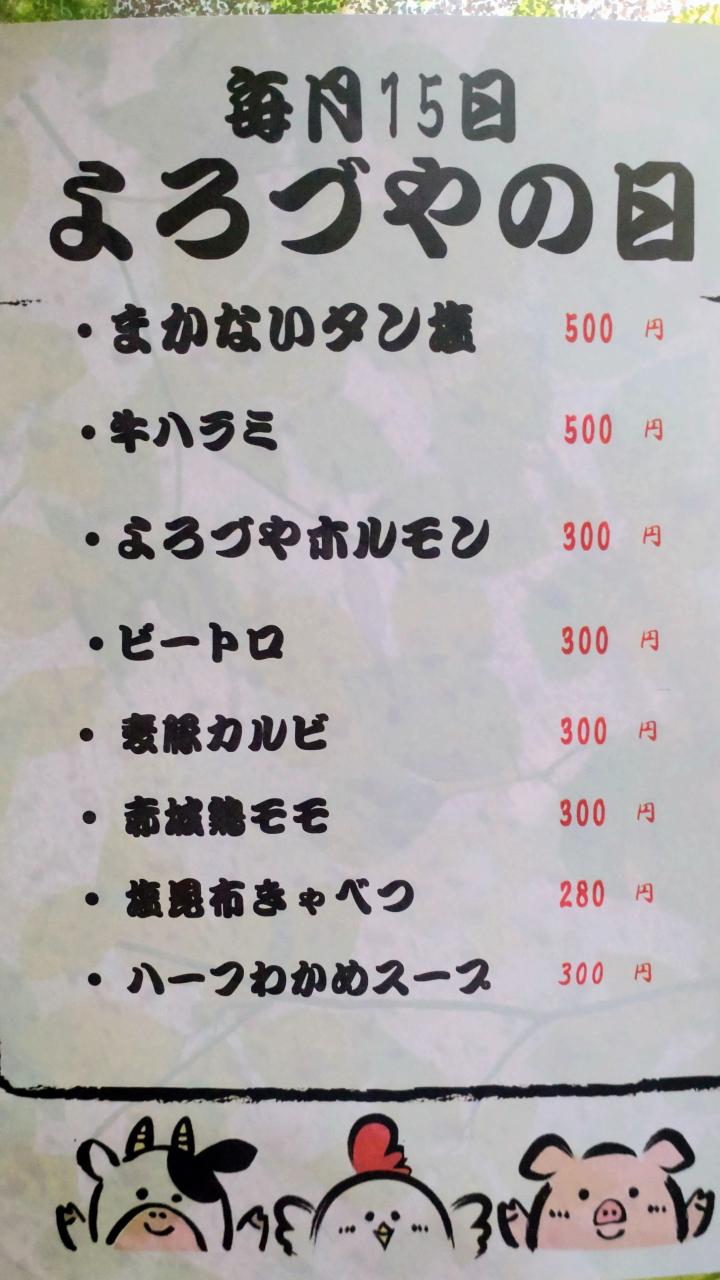 毎月15日
よろづやの日
・まかないタン塩 500 円
・牛ハラミ 500 円
・よろづやホルモン 300 円
・ピートロ 300 円
・麦豚カルビ 300 円
・赤城鶏モモ 300 円
・塩昆布きゃべつ 280 円
・ハーフわかめスープ 300 円